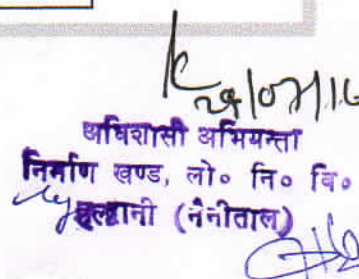 अधिशासी अभियन्ता
निर्माण खण्ड, लो० नि० वि०
हल्द्वानी (नैनीताल)